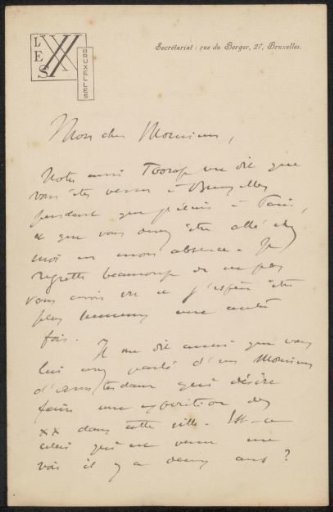 LES XX
BRUXELLES
Secrétariat : rue du Berger, 27, Bruxelles.
Mon cher Monsieur,
Notre ami Toorop me dit que
vous êtes venu à Bruxelles
pendant que j'étais à Paris,
et que vous avez été allé chez
moi en mon absence. Je
regrette beaucoup de ne pas
vous avoir vu et j'espère être
plus heureux une autre
fois.
Il me dit aussi que vous
lui avez parlé d'un Monsieur
d'Amsterdam qui désire
faire une exposition des
XX dans cette ville. Est-ce
celui qui est venu me
voir il y a deux ans ?